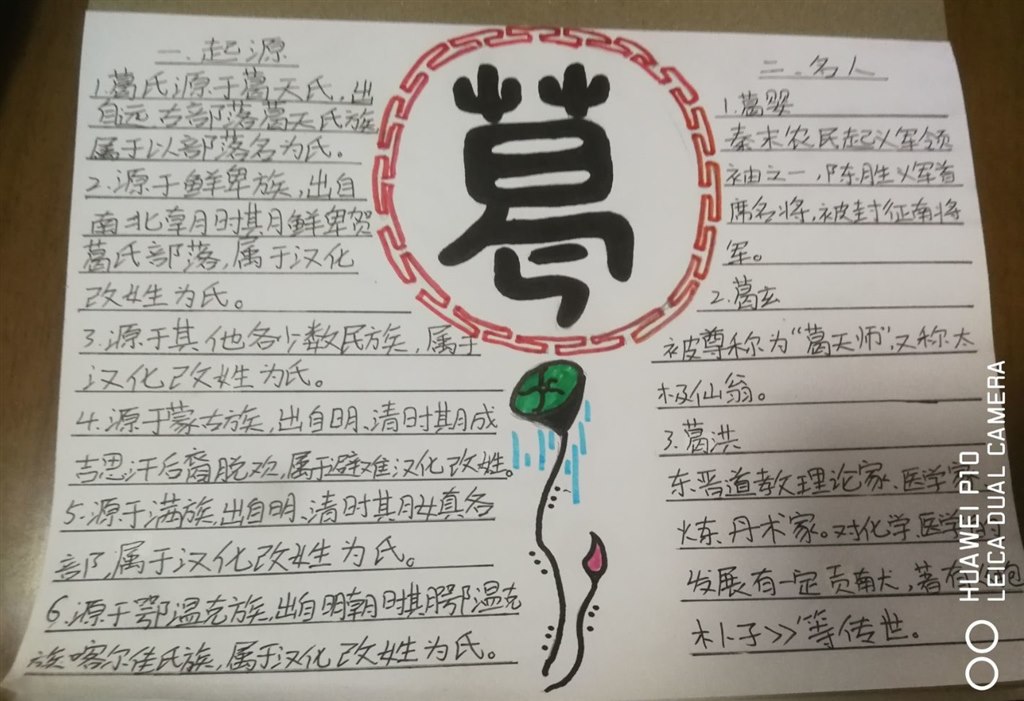 一.起源
1.葛氏源于葛天氏,出
自远古部落葛天氏族,
属于以部落名为氏。
2.源于鲜卑族,出自
南北章月时期鲜卑贺
葛氏部落,属于汉化
改姓为氏。
3.源于其他各少数民族,属于
汉化改姓为氏。
4.源于蒙古族,出自明、清时期成
吉思汗后裔脱欢,属于避难汉化改姓。
5.源于满族,出自明、清时期女真各
部,属于汉化改姓为氏。
6.源于鄂温克族,出自明朝时期鄂温克
族喀尔佳氏族,属于汉化改姓为氏。
葛
三.名人
1.葛婴
秦末农民起义军领
袖之一,陈胜义军首
席名将,被封征南将
军。
2.葛玄
被尊称为“葛天师”,又称太
极仙翁。
3.葛洪
东晋道教理论家、医学家
炼丹术家。对化学、医学的
发展有一定贡献,著有
朴子》等传世。
HUAWEI P10
LEICA DUAL CAMERA